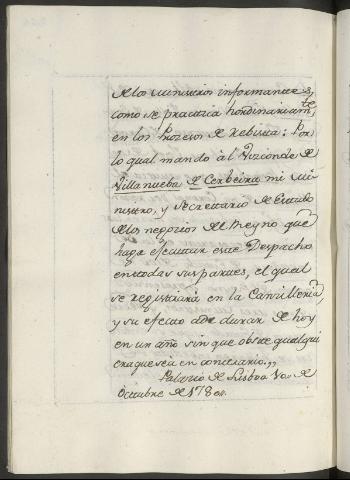 de los ministros informantes,
como se practica hordinariam.te
en los Prozesos de Rebista: Por
lo qual mando àl Vizconde de
Villanueba de Cerbeira mi Mi-
nistro, y Secrettario de Estado
de los negocios del Reyno que
haga efecutar este Despacho
en todas sus partes, el qual
se registrará en la Canzilleria,
y su efecto a de durar de hoy
en un año sin que obste qualqui
era que sea en contrario.,,
Palacio de Lisboa de
Octubre de